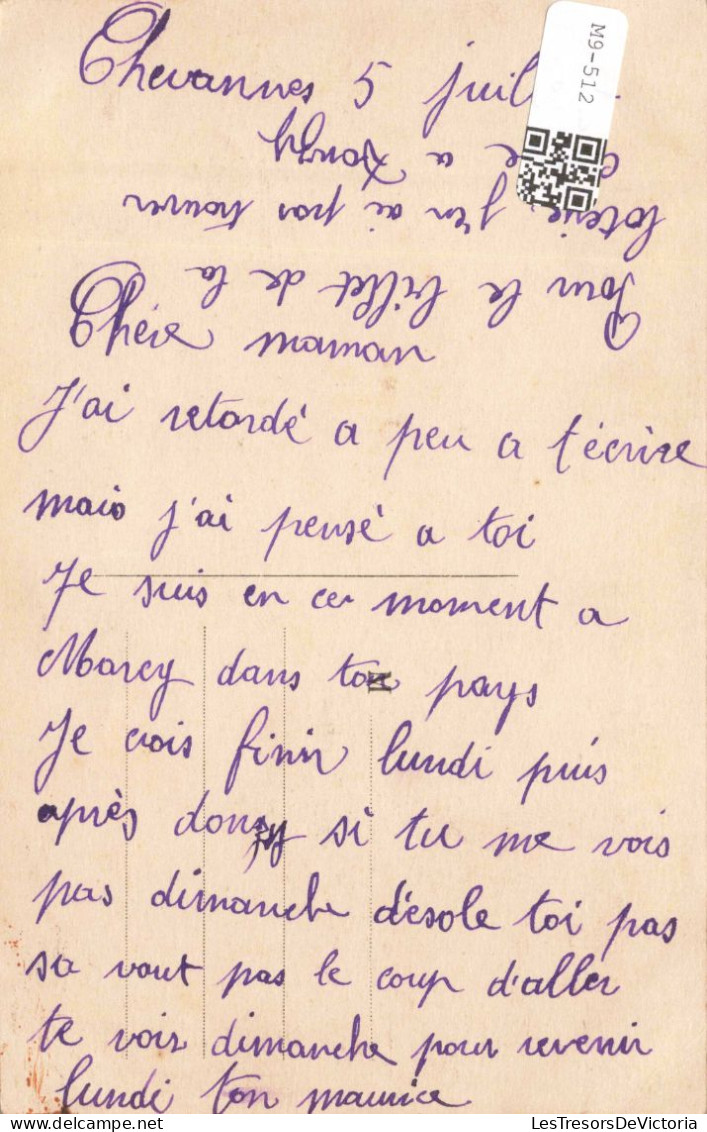 Chevannes 5 juil
Chère maman
J'ai retardé a peu a t'écrire
mais j'ai pensé a toi
Je suis en ce moment a
Marcy dans ton pays
Je crois finir lundi puis
après donzy si tu me vois
pas dimanche désole toi pas
sa vaut pas le coup d'aller
te voir dimanche pour revenir
lundi ton maurice
Pour le billet de la
loterie j'en ai pas trouver
a Donzy
M9-512
LesTresorsDeVictoria